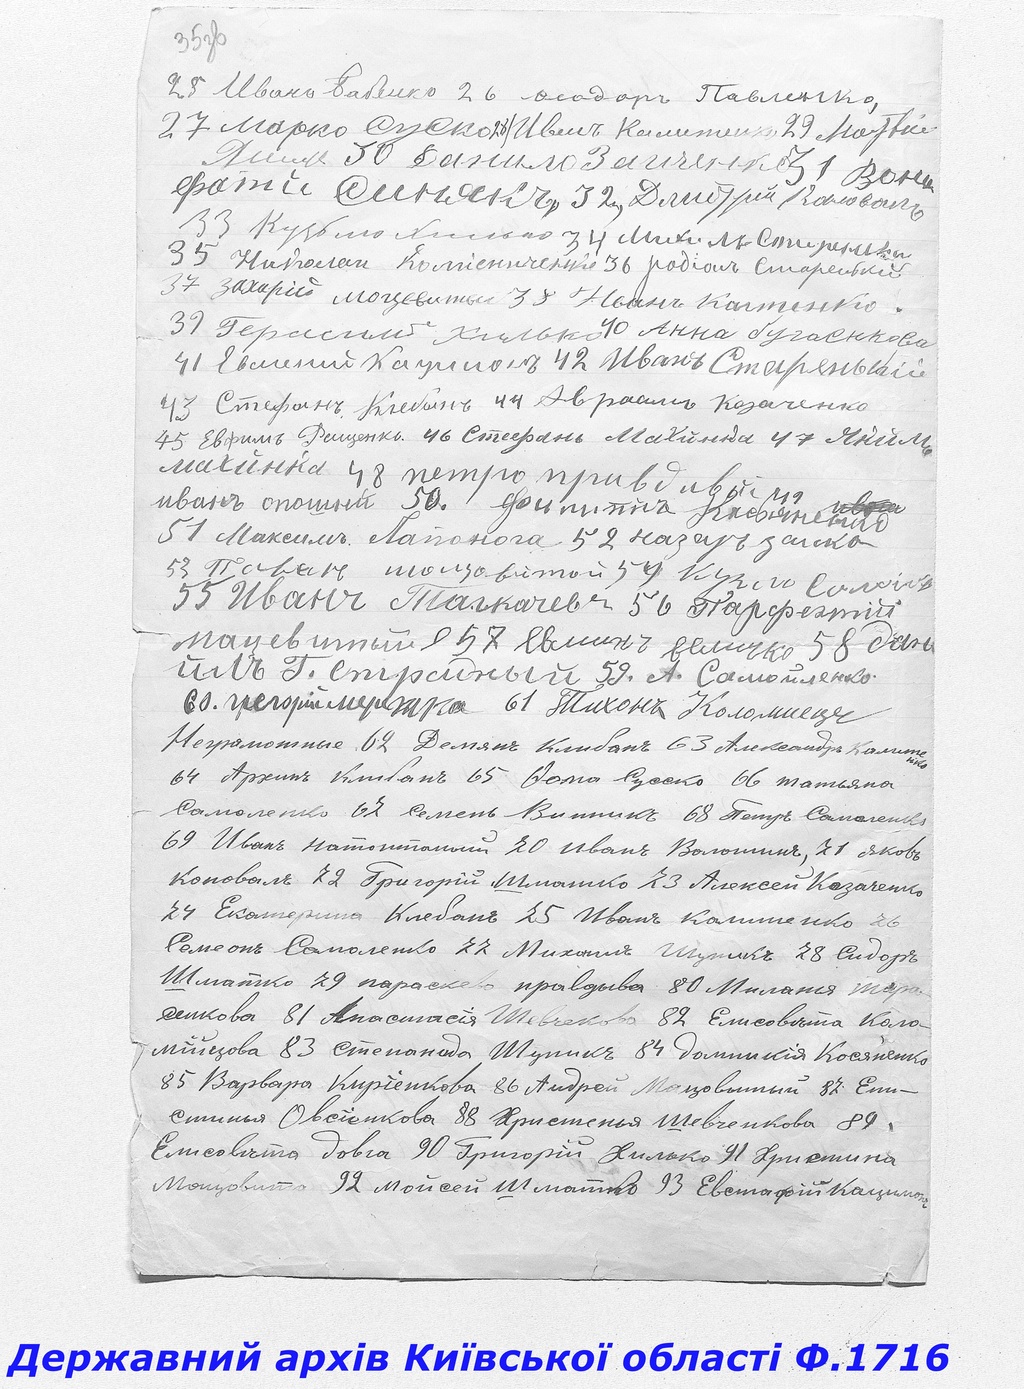 35зв
25 Иванъ Бабенко 26 Феодоръ Павленко,
27 Марко Суско 28 Иванъ Калитенко 29 Матвій
30 Данило Заиченко 31 Вони
фатій Синякъ, 32, Дмитрій Коновалъ
33 Кузьма Хилько 34 Михаилъ Старенькій
35 Николай 36 Родіонъ Старенькій
37 Захарій Моцовитый 38 Иванъ Калтенко.
39 Герасимъ Хилько 40 Анна Бугаенкова
41 Евгений Кацимонъ 42 Иванъ Стареньший
43 Стефанъ Клебанъ 44 Авраамъ Козаченко
45 Ефимъ 46 Стефанъ Махйнка 47 Якимъ
махйнка 48 петро правдивый 49
иванъ опошній 50. Филиппъ
51 Максимъ Лапонога 52 назаръ заико
53 моцовитой 54 Кузма
55 Иванъ Толкачевъ 56 Парфентий
мацевитый 57 Евминъ величко 58 Дани
йлъ Г. Страдный 59. А. Самойленко.
60. григорий 61 Тихонъ Коломиецъ
Неграмотные 62 Демянъ Клибанъ 63 Александръ Калите
нко
64 Архипъ Клибанъ 65 Фома Суско 66 татьяна
Самоленко 67 Семенъ Винникъ 68 Петръ Самоленко
69 Иванъ 70 Иванъ Волошинъ, 71 Яковъ
Коновалъ 72 Григорій Шматко 73 Алексей Казаченко
74 Екатерина Клебанъ 75 Иванъ Калитенко 76
Семеонъ Самоленко 77 Михаилъ Шупикъ 78 Сидоръ
Шматко 79 параскева правдыва 80 Миланія Тара
сенкова 81 Анастасія Шевчекова 82 Елисовѣта Коло-
мійцова 83 Степанада Шупикъ 84 Домникія Косяненко
85 Варвара Киріенкова 86 Андрей Моцовитый 87 Епи-
стинья Овсіенкова 88 Христенья Шевченкова 89.
Елисовѣта Довга 90 Григорій Хилько 91 Христина
Моцовита 92 Мойсей Шматко 93 Евстафій Кацимонъ
Державний архів Київської області Ф.1716